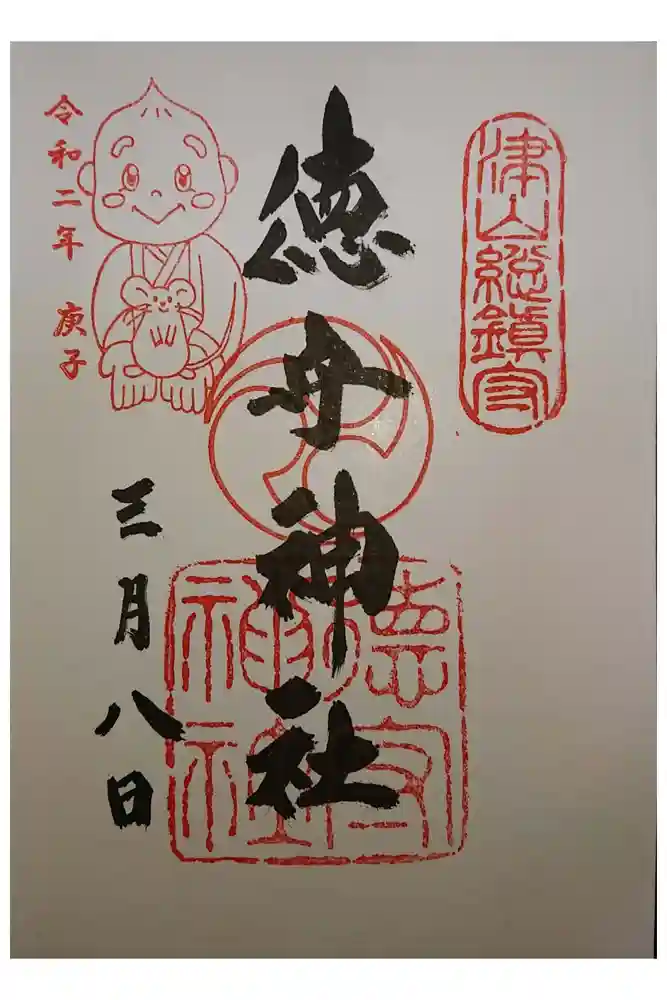 津山総鎮守
徳守神社
徳守
神社
令和二年 庚子
三月八日